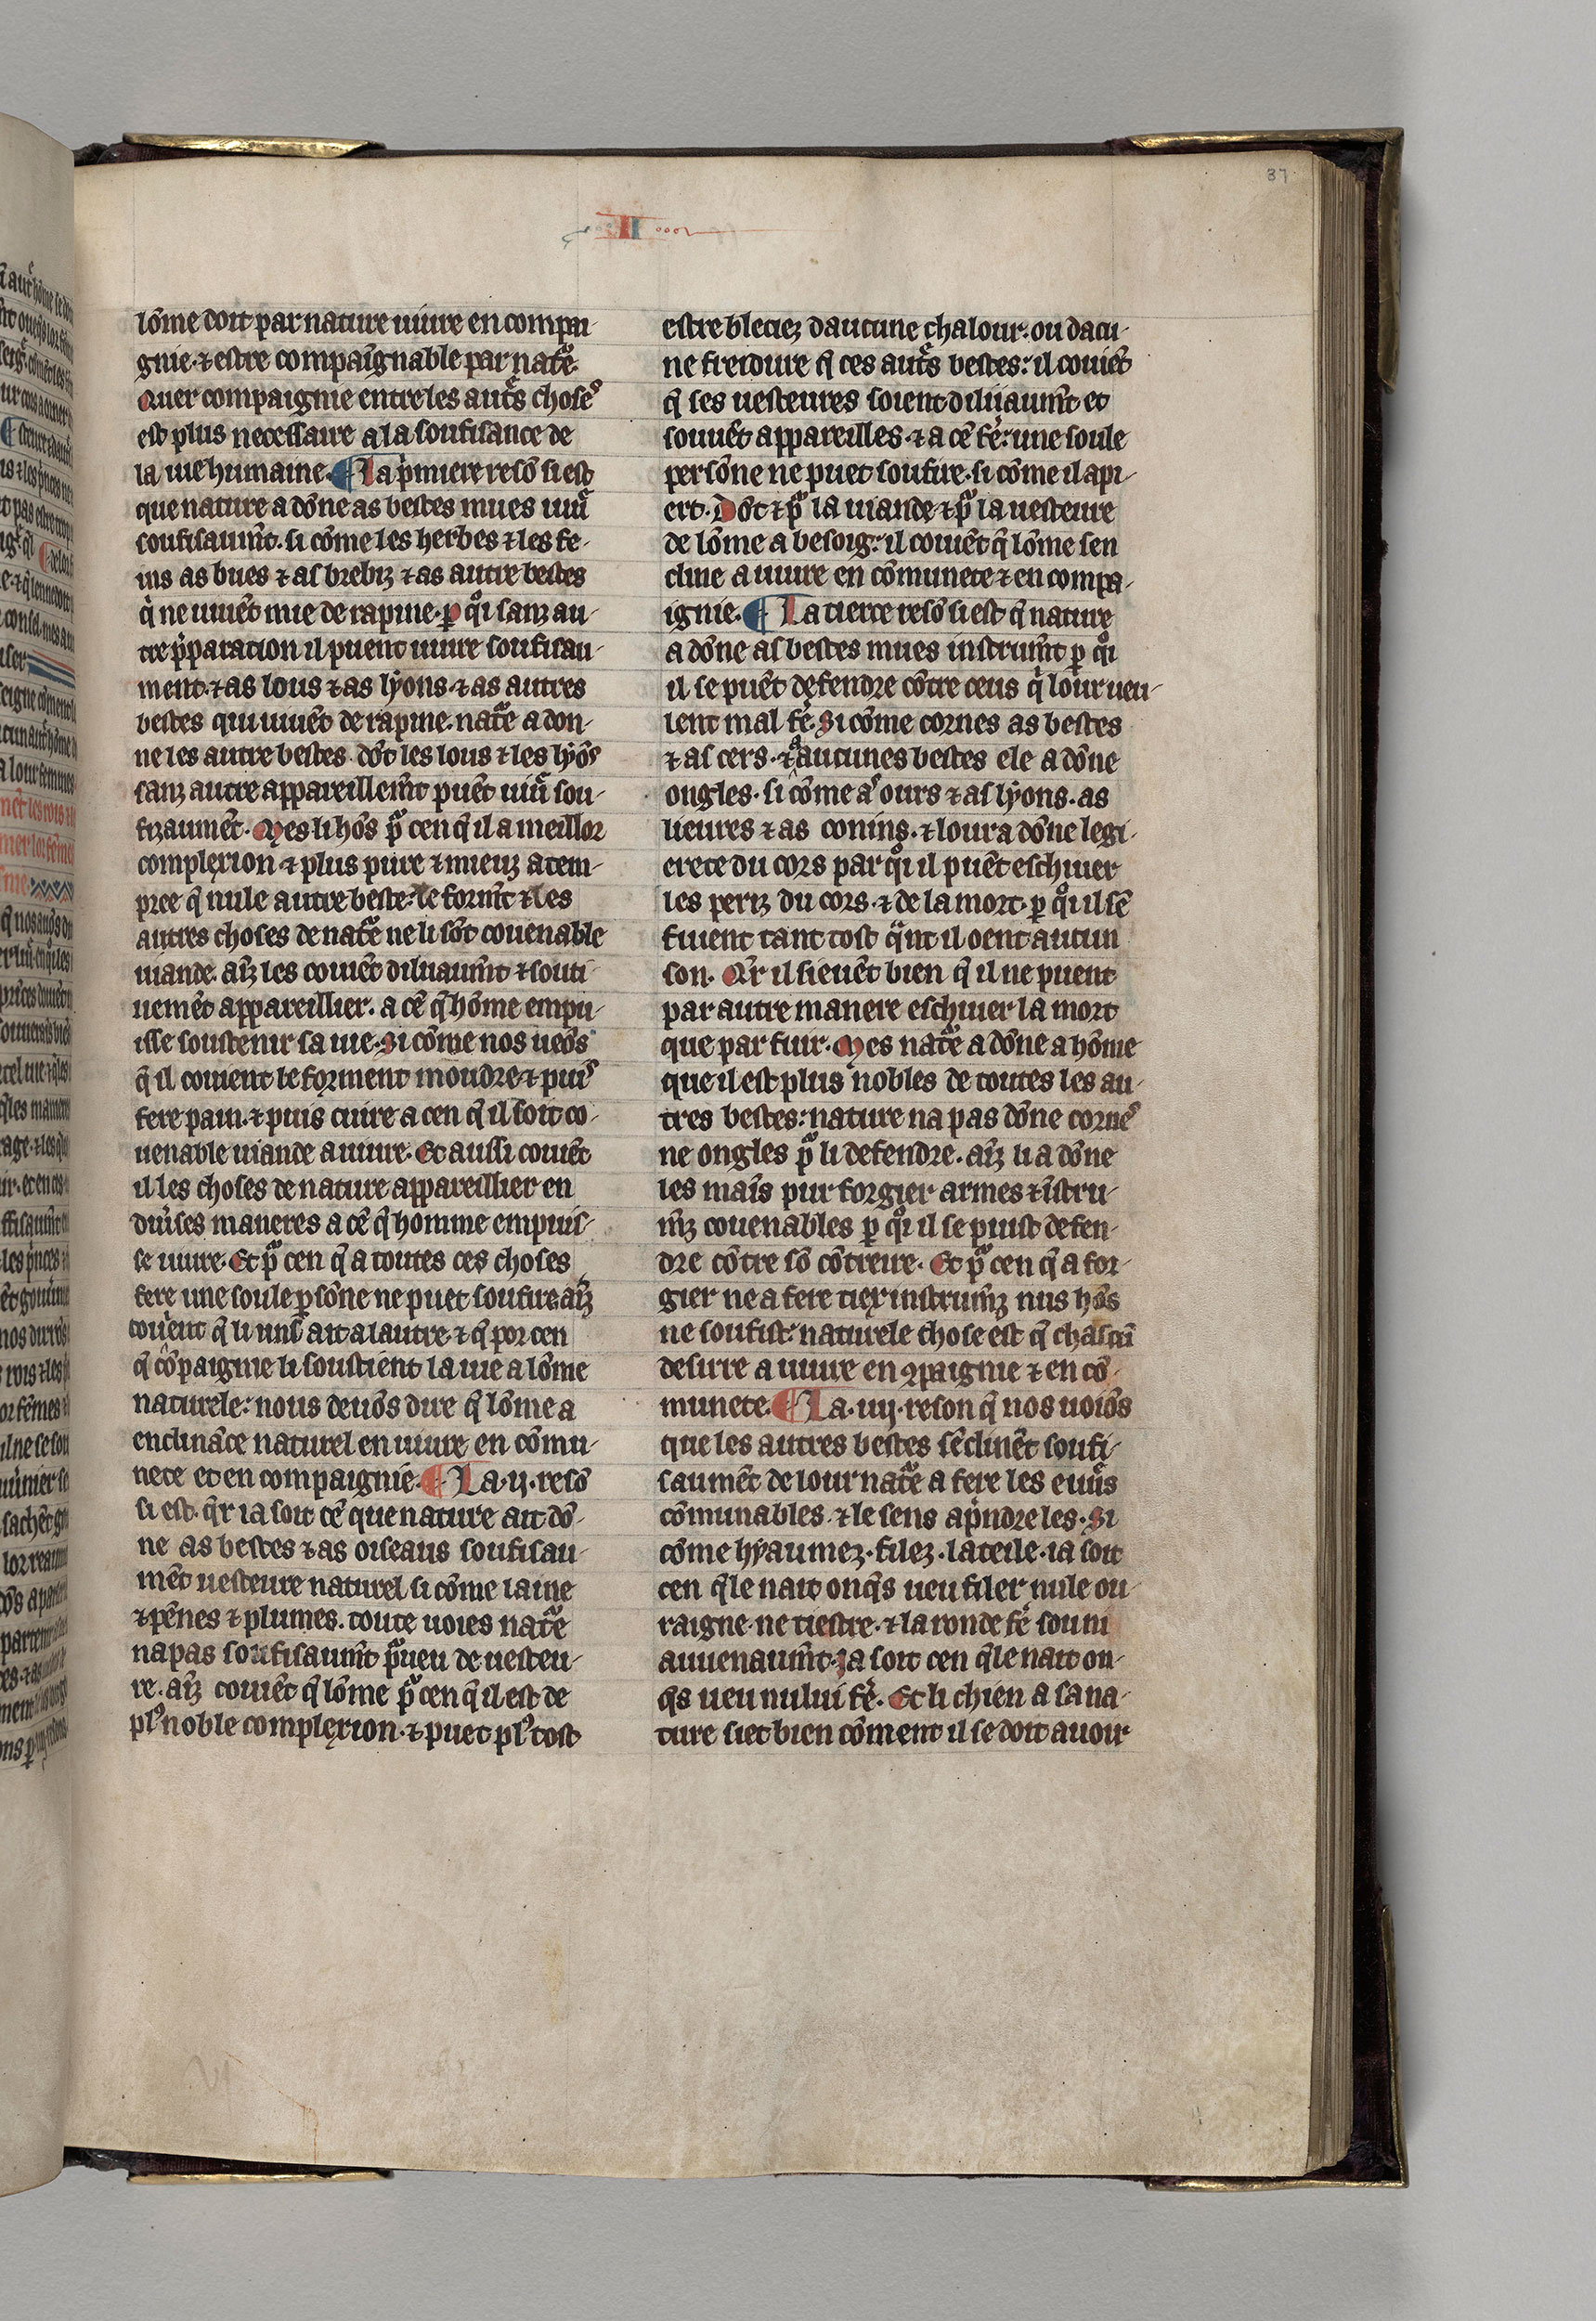 37
II
lõme doit par nature uiure en compai-
gnie. ⁊ estre compaĩgnable par natᵉ.
Quer compaignie entre les autᵉs choseˢ
est plus necessaire a la soufisance de
la uie humaine. ¶ La p̃miere resõ si est
que nature a dõne as bestes mues uiuͬ
soufisaum̃t. si cõme les herbes ⁊ les fe-
ins as bues ⁊ as brebiz ⁊ as autre bestes
q̇ ne uiuẽt mie de rapine. ꝑ qͦi sanz au-
tre p̃paration il puent uiure soufisau-
ment. ⁊ as lous ⁊ as lẏons. ⁊ as autres
bestes qui uiuẽt de rapine. natᵉ a don-
ne les autre bestes. dõt les lous ⁊ les lẏõs
sanz autre appareillem̃t puẽt uiuͬ sou-
fizaumẽt. Mes li hõs pͬ cen q̃ il a meillor
complexion ⁊ plus pure ⁊ mieuz atem-
pree q̃ nule autre beste: le form̃t ⁊ les
autres choses de natᵉ ne li sõt couenable
uiande. aĩz les couiẽt diliiaum̃t ⁊ souti-
uemẽt appareillier. a cẽ q̃ hõme empu-
isse soustenir sa uie. Si cõme nos ueõs
q̃ il couient le forment moudre ⁊ puiˢ
fere pain. ⁊ puis cuire a cen q̃ il soit co-
uenable uiande a uiure. Et aussi couiẽt
il les choses de nature appareillier en
diu̾ses maneres a cẽ q̃ homme empuis-
se uiure. Et pͬ cen q̃ a toutes ces choses
fere une soule ꝑsõne ne puet soufire. aĩz
couient q̃ li uns ait a lautre ⁊ q̃ por cen
q̃ cõpaignie li soustient la uie a lõme
naturele: nous deuõs dire q̃ lõme a
enclinãce naturel en uiure en cõmu-
nete et en compaignie. ¶ La .ij. resõ
si est. q̃r ia soit cẽ que nature ait dõ-
ne as bestes ⁊ as oiseaus soufisau-
mẽt uesteure naturel si cõme laine
⁊ pẽnes ⁊ plumes. toute uoies natᵉ
na pas soufisaum̃t pͬueu de uesteu-
re. aĩz couiẽt q̃ lõme pͬ cen q̃ il est de
plꝰ noble complexion. ⁊ puet plꝰ tost
estre bleciez daucune chalour. ou dacu-
ne freidure q̃ ces autᵉs bestes: il couiẽt
q̃ ses uesteures soient diliiaum̃t et
souuẽt appareilles. ⁊ a cẽ fẽ: une soule
persõne ne puet soufire. si cõme il api-
ert. Dõt ⁊ pͬ la uiande ⁊ pͬ la uesteure
de lõme a besoig: il couiẽt q̃ lõme sen
cline a uiure en cõmunete ⁊ en compa-
ignie. ¶ La tierce resõ si est q̃ nature
a dõne as bestes mues instrum̃t ꝑ qͦi
il se puẽt defendre cõtre ceus q̇ lour ueu-
lent mal fẽ. Si cõme cornes as bestes
⁊ as cers. ⁊ a aucunes bestes ele a dõne
ongles. si cõme as ours ⁊ as lẏons. as
lieures ⁊ as conins. ⁊ lour a dõne legi-
erete du cors par qͦi il puẽt eschiuer
les periz du cors. ⁊ de la mort. ꝑ qͦi il sẽ
fuient tant tost qᵃnt il oent aucun
son. Q̃r il sieuẽt bien q̃ il ne puent
par autre manere eschiuer la mort
que par fuir. Mes natᵉ a dõne a hõme
que il est plus nobles de toutes les au-
tres bestes: nature na pas dõne corneˢ
ne ongles pͬ li defendre. aĩz li a dõne
les maĩs pur forgier armes ⁊ ĩstru-
m̃z couenables ꝑ qͦi il se puist defen-
dre cõtre sõ cõtreire. Et pͬ cen q̃ a for-
gier ne a fere tiex instrum̃z nus hõs
ne soufist: naturele chose est q̃ chascũ
desirre a uiure en ꝯpaignie ⁊ en cõ-
munete. ¶ La .iiij. reson q̃ nos uoiõs
que les autres bestes sẽclinẽt soufi-
saumẽt de lour natᵉ a fere les euuͬs
cõmunables. ⁊ le sens ap̃ndre les. Si
cõme hẏaumez. filez. la teile. ia soit
cen q̃le nait onq̃s ueu filer nule ou
raigne. ne tiestre. ⁊ la ronde fẽ souni
auuenaum̃t. Ja soit cen q̃le nait on-
q̃s ueu nului fẽ. Et li chien a sa na-
ture siet bien cõment il se doit auoir